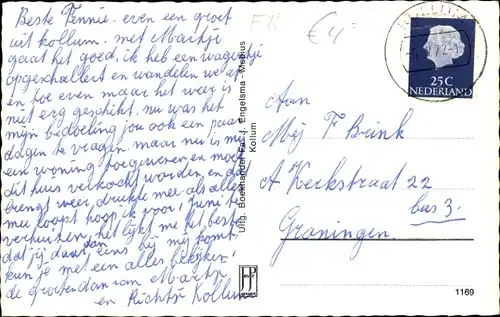 Beste Fennie. even een groet
uit kollum. met Maartje
gaat het goed. ik heb een wagentje
opgeschallert en wandelen we af
en toe even maar het weer is
niet erg geschikt. nu was het
mijn bedoeling jou ook een paar
dagen te vragen. maar nu is mij
een woning toegewezen en moet
dit huis verkocht worden, en dat
brengt weer drukte mee als alles
mee loopt hoop ik voor 1 juni te
verhuizen. het lijkt me het beste
dat jij dan eins bij mij komt.
kun je met een alles bekijken.
de groeten dan van Martje
en Richtje Kollum
FR
€4,-
72-1
25C
NEDERLAND
Uitg. Boekhandel Fa. J. Engelsma - Mobius
Kollum
Aan
Mej F Brink
A Kerkstraat 22
bus 3.
Groningen.
1169